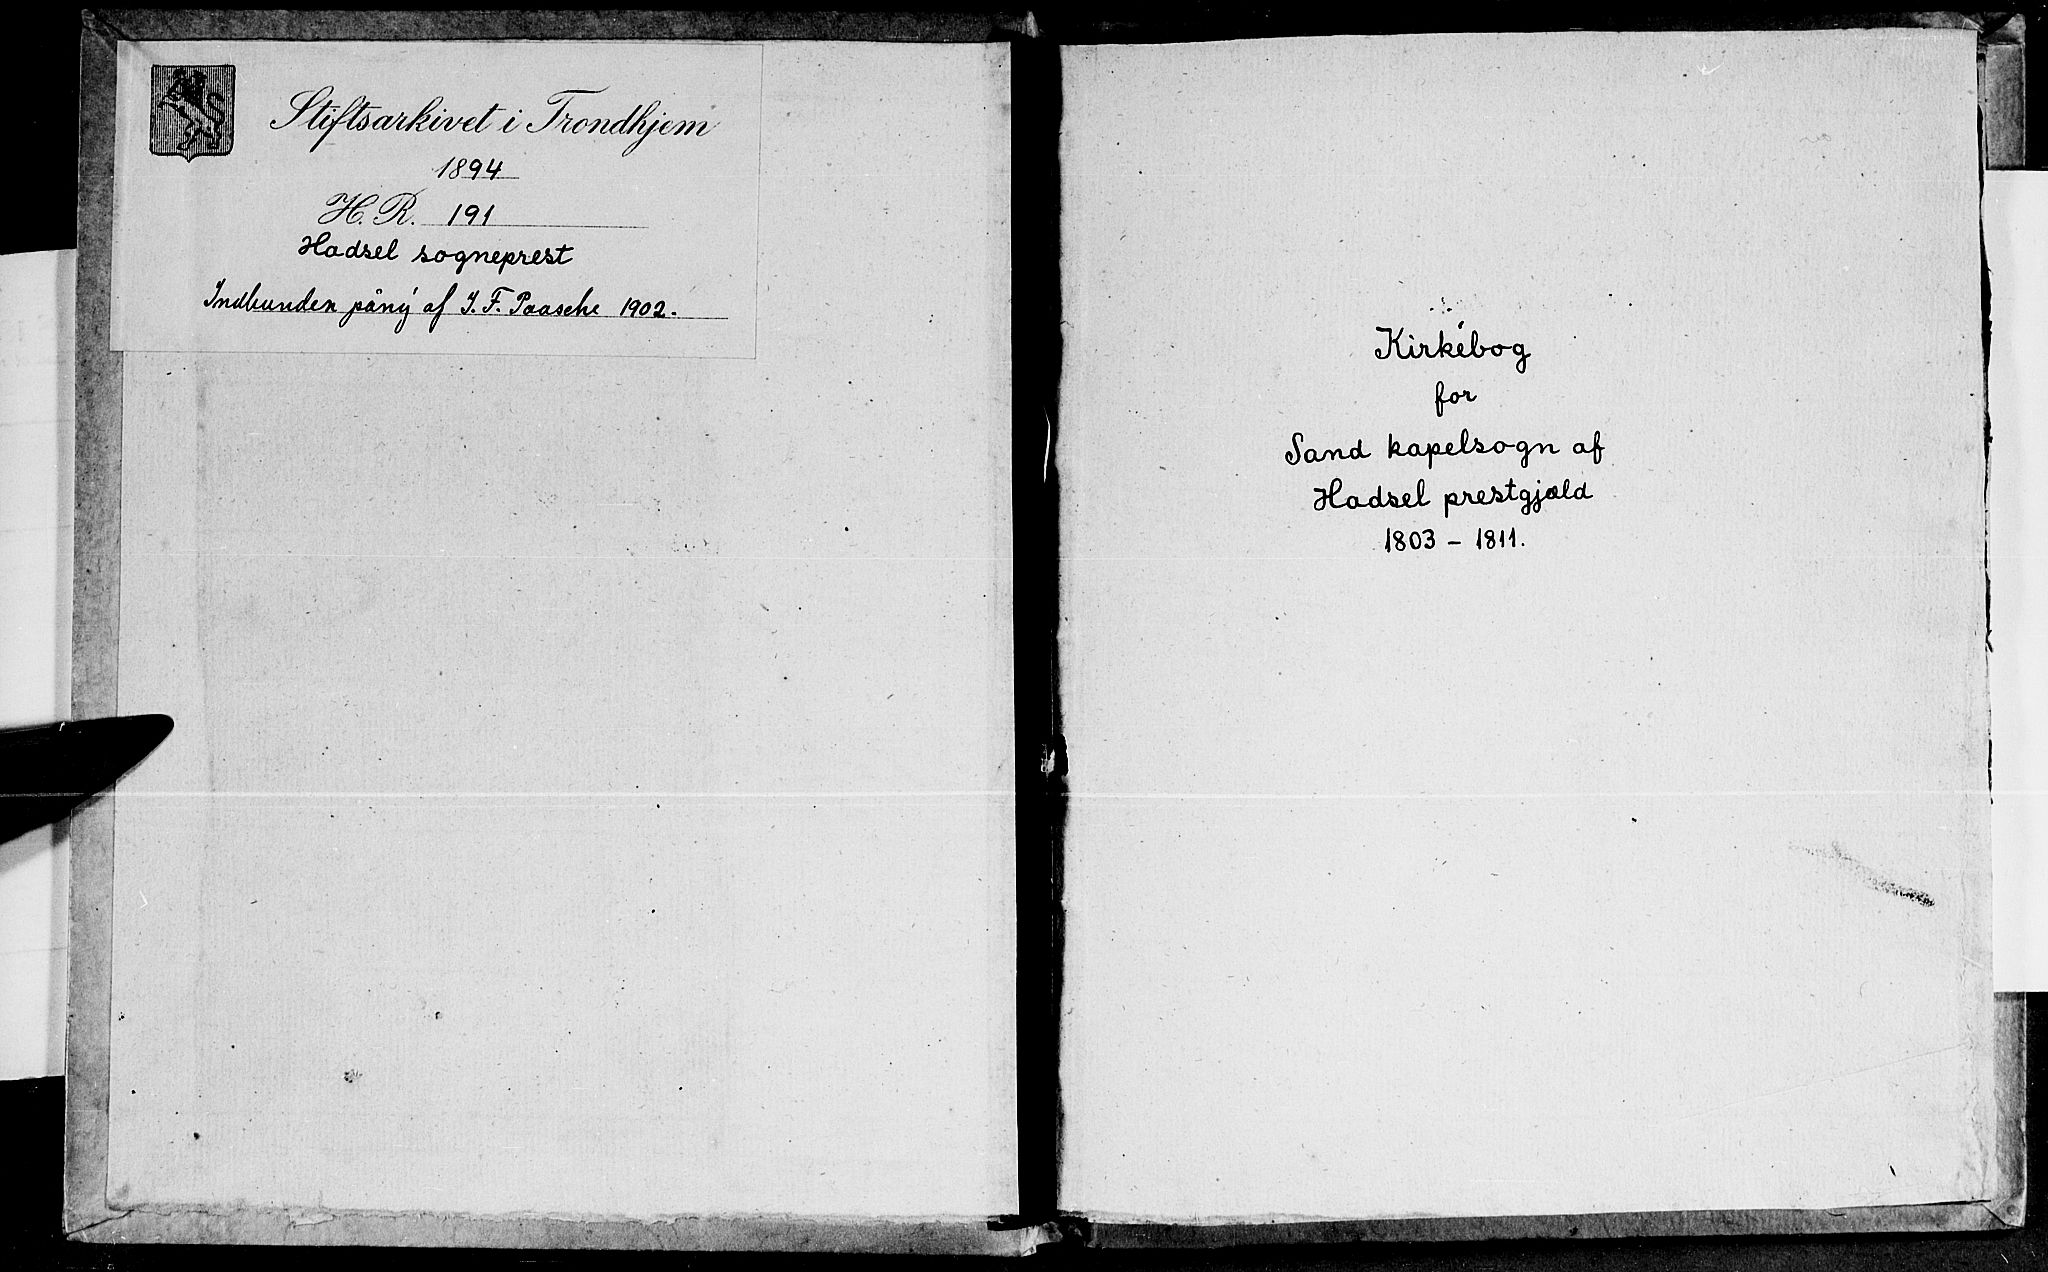 Stiftsarkivet i Trondhjem
1894
H. R. 191
Hadsel sogneprest
Indbunden påny af J. F. Paasche 1902.
Kirkebog
for
Sand kapelsogn af
Hadsel prestgjæld
1803 - 1811.